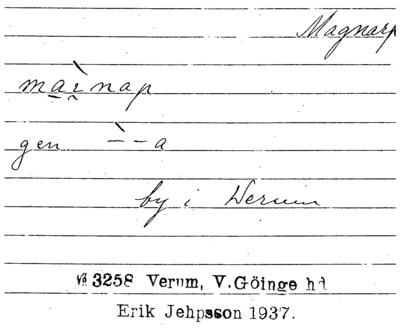 Magnarp
mài̯nap
gen –̀ – a
by i Verum
№ 3258 Verum, V.Göinge hd
Erik Jehpsson 1937.